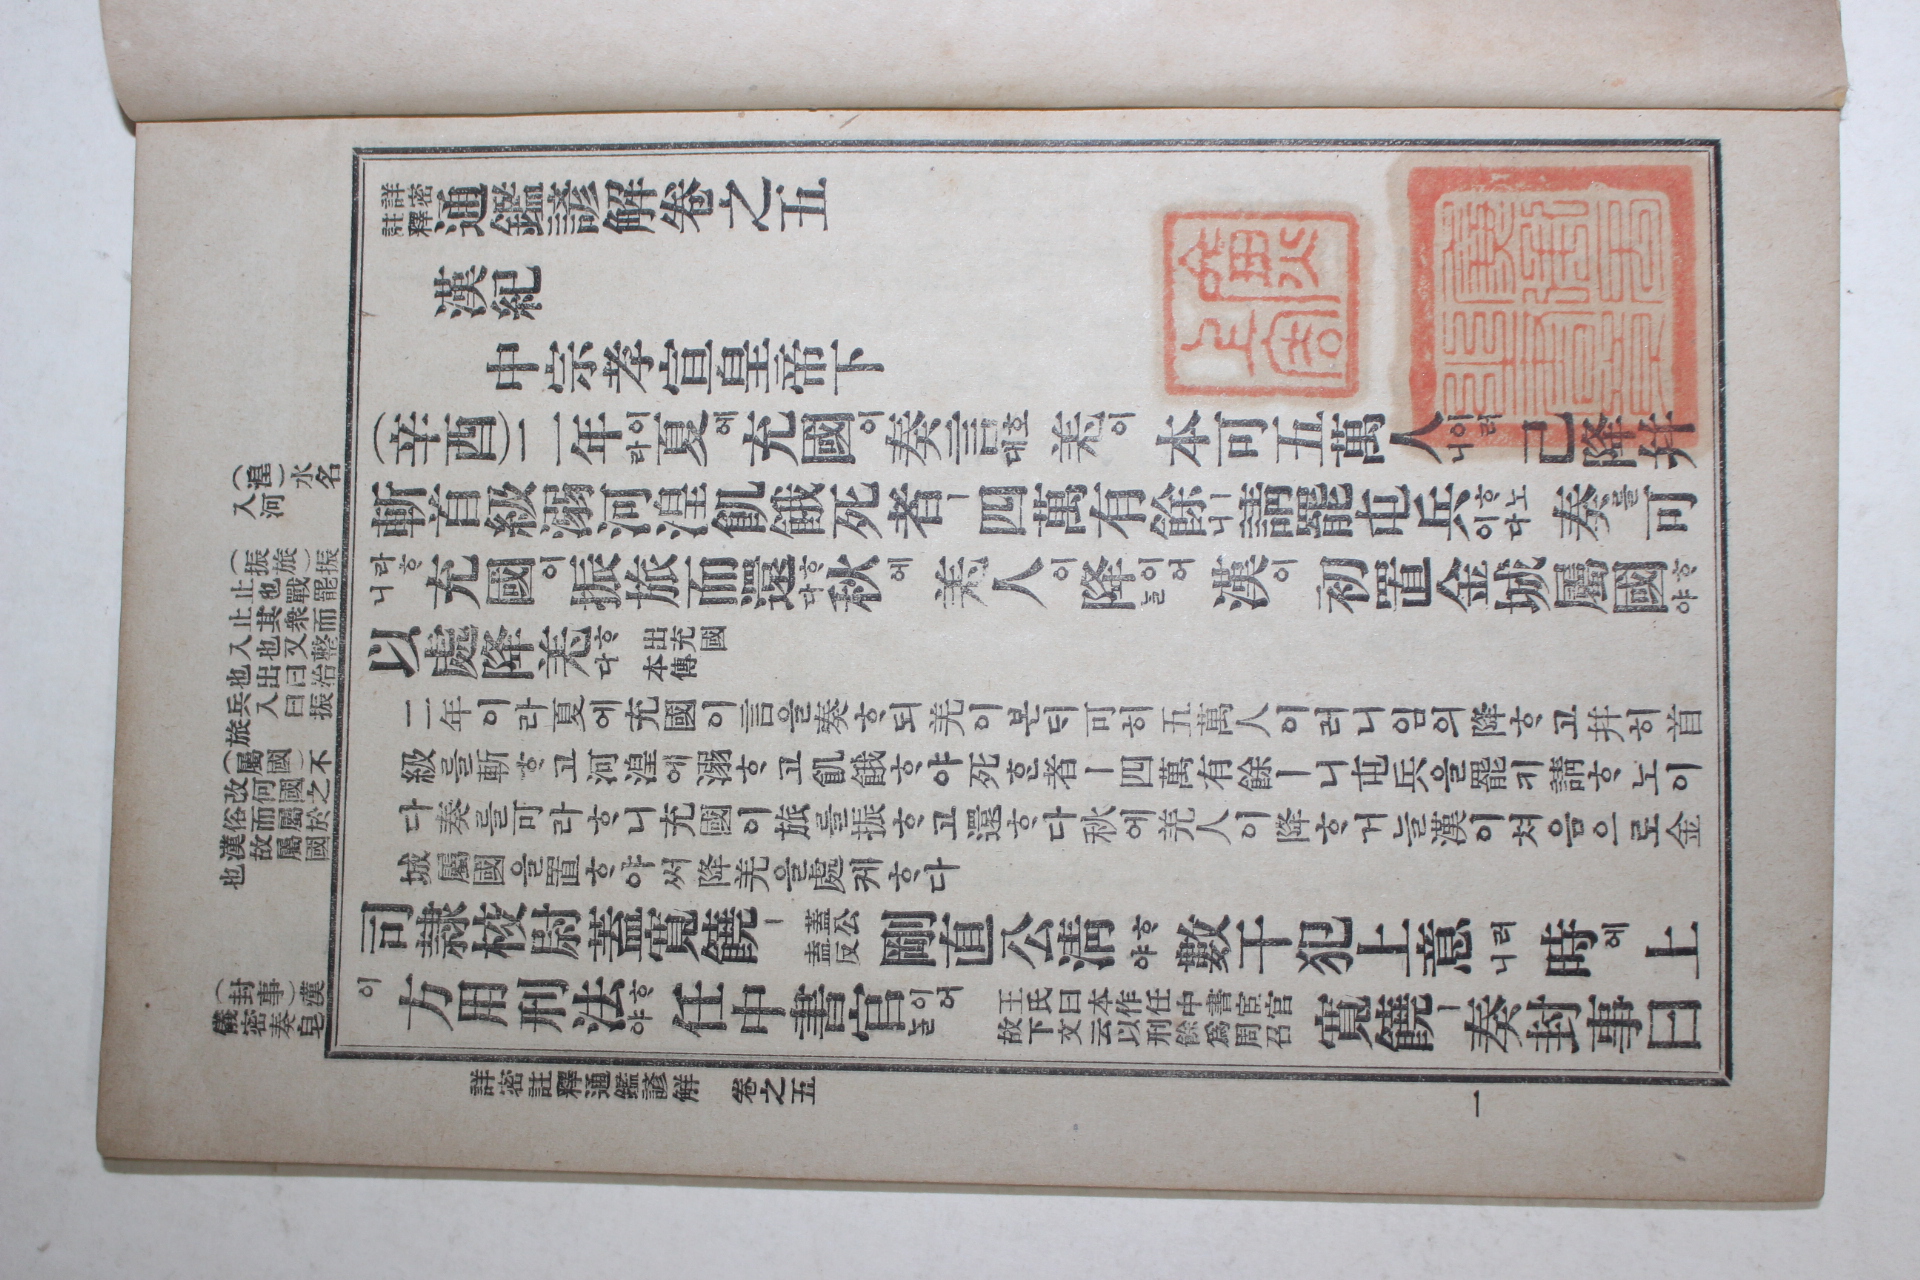 詳密註釋通鑑諺解卷之五
漢紀
中宗孝宣皇帝下
(辛酉)二年이라夏에充國이奏言호대羌이本可五萬人이러니已降幷
斬首級溺河湟飢餓死者ㅣ四萬有餘ㅣ니請罷屯兵ᄒᆞ노이다奏를可
라ᄒᆞ니充國이振旅而還ᄒᆞ다秋에羌人이降이어늘漢이初置金城屬國ᄒᆞ야
以處降羌ᄒᆞ다出充國本傳
二年이라夏에充國이言을奏ᄒᆞ되羌이본ᄃᆡ可히五萬人이러니임의降ᄒᆞ고幷히首
級를斬ᄒᆞ고河湟에溺ᄒᆞ고飢餓ᄒᆞ야死ᄒᆞᆫ者ㅣ四萬有餘ㅣ니屯兵을罷키請ᄒᆞ노이
다奏를可라ᄒᆞ니充國이旅를振ᄒᆞ고還ᄒᆞ다秋에羌人이降ᄒᆞ거늘漢이처음으로金
城屬國을置ᄒᆞ야써降羌을處케ᄒᆞ다
司隷校尉蓋寬饒ㅣ蓋公盍反剛直公淸ᄒᆞ야數干犯上意러니時에上
이方用刑法ᄒᆞ야任中書官이어늘王氏曰本作任中書宦官故下文云以刑餘爲周召寬饒ㅣ奏封事曰
(湟)水名
入河
(振旅)振
止也戰罷
止其衆而
入也又整
也出曰治
兵入曰振
旅
(屬國)不
改何國之
俗而屬於
漢故屬國
也
(封事)漢
儀密奏皂
詳密註釋通鑑諺解 卷之五
一